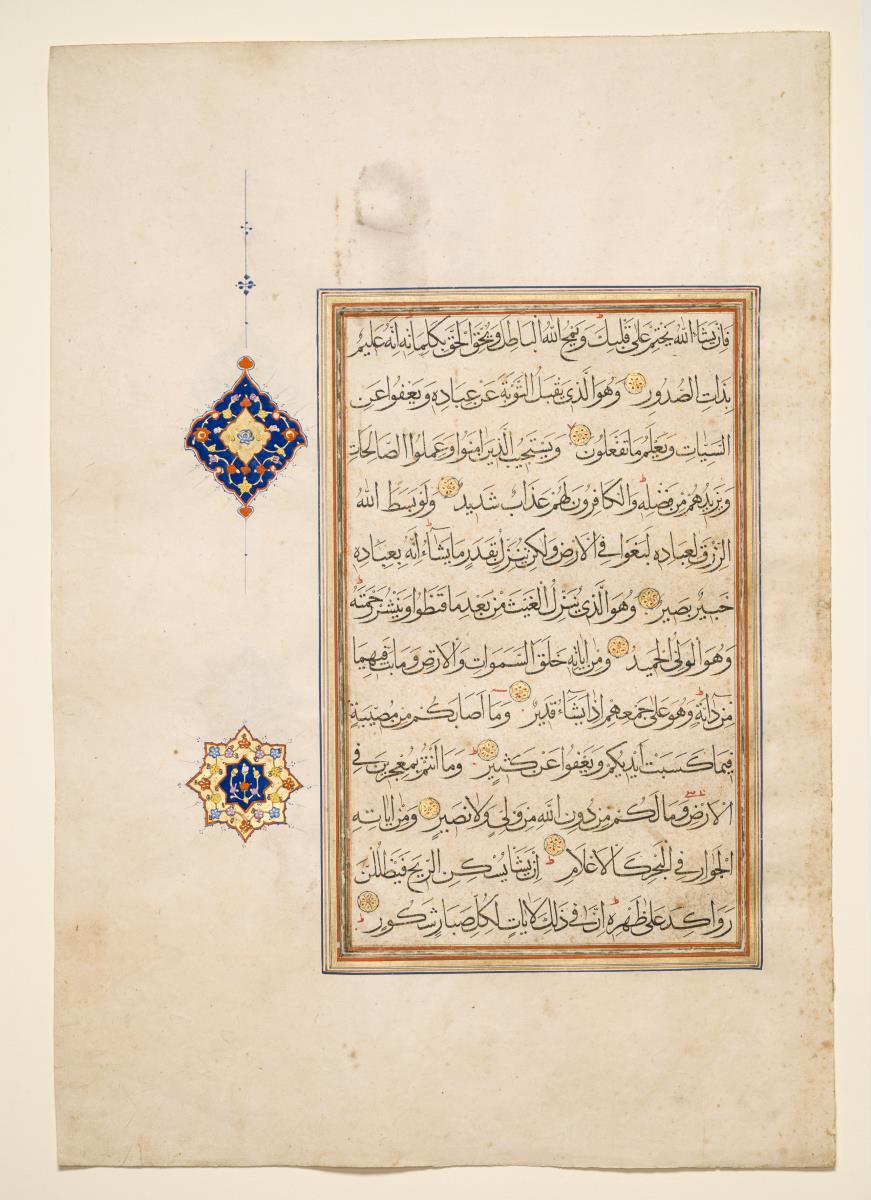 فَاِنْ يَشَاِ اللّٰهُ يَخْتِمْ عَلٰى قَلْبِكَ وَيَمْحُ اللّٰهُ الْبَاطِلَ وَيُحِقُّ الْحَقَّ بِكَلِمَاتِهِ اِنَّهُ عَلِيمٌ
بِذَاتِ الصُّدُورِ وَهُوَ الَّذِي يَقْبَلُ التَّوْبَةَ عَنْ عِبَادِهِ وَيَعْفُوا عَنِ
السَّيِّاتِ وَيَعْلَمُ مَا تَفْعَلُونَ وَيَسْتَجِيبُ الَّذِينَ اٰمَنُوا وَعَمِلُوا الصَّالِحَاتِ
وَيَزِيدُهُمْ مِنْ فَضْلِهِ وَالْكَافِرُونَ لَهُمْ عَذَابٌ شَدِيدٌ وَلَوْ بَسَطَ اللّٰهُ
الرِّزْقَ لِعِبَادِهِ لَبَغَوْا فِي الْاَرْضِ وَلٰكِنْ يُنَزِّلُ بِقَدَرٍ مَا يَشَآءُ اِنَّهُ بِعِبَادِهِ
خَبِيرٌ بَصِيرٌ وَهُوَ الَّذِي يُنَزِّلُ الْغَيْثَ مِنْ بَعْدِ مَا قَنَطُوا وَيَنْشُرُ رَحْمَتَهُ
وَهُوَ الْوَلِيُّ الْحَمِيدُ وَمِنْ اٰيَاتِهِ خَلْقُ السَّمٰوَاتِ وَالْاَرْضِ وَمَا بَثَّ فِيهِمَا
مِنْ دَآبَّةٍ وَهُوَ عَلٰى جَمْعِهِمْ اِذَا يَشَآءُ قَدِيرٌ وَمَآ اَصَابَكُمْ مِنْ مُصِيبَةٍ
فَبِمَا كَسَبَتْ اَيْدِيكُمْ وَيَعْفُوا عَنْ كَثِيرٍ وَمَآ اَنْتُمْ بِمُعْجِزِينَ فِي
الْاَرْضِ وَمَا لَكُمْ مِنْ دُونِ اللّٰهِ مِنْ وَلِيٍّ وَلَا نَصِيرٍ وَمِنْ اٰيَاتِهِ
الْجَوَارِ فِي الْبَحْرِ كَالْاَعْلَامِ اِنْ يَشَا يُسْكِنِ الرِّيحَ فَيَظْلَلْنَ
رَوَاكِدَ عَلٰى ظَهْرِهِ اِنَّ فِي ذٰلِكَ لَاٰيَاتٍ لِكُلِّ صَبَّارٍ شَكُورٍ